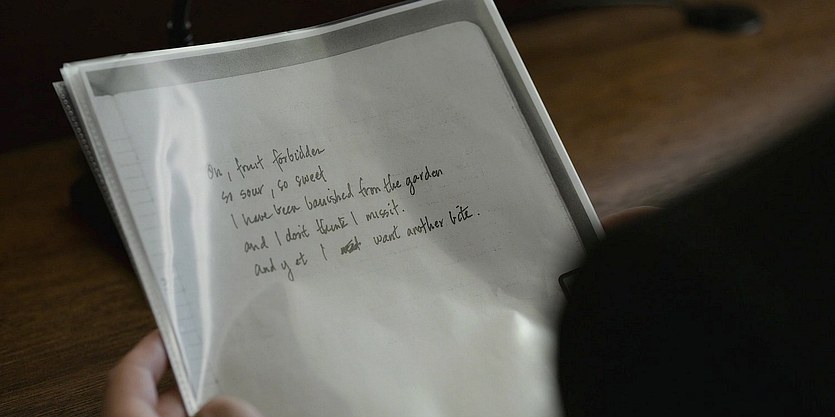 Oh, fruit forbidden
so sour, so sweet
I have been banished from the garden
and I don't think I miss it.
and yet I want another bite.